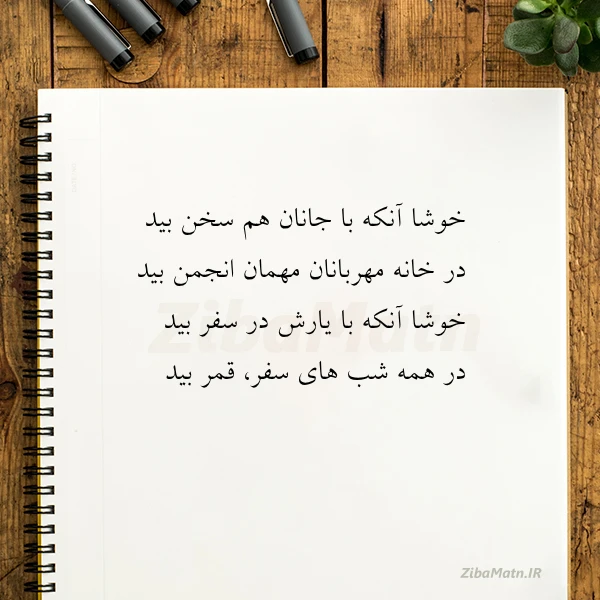 خوشا آنکه با جانان هم سخن بید
در خانه مهربانان مهمان انجمن بید
خوشا آنکه با یارش در سفر بید
در همه شب های سفر، قمر بید
ZibaMatn
ZibaMatn.IR